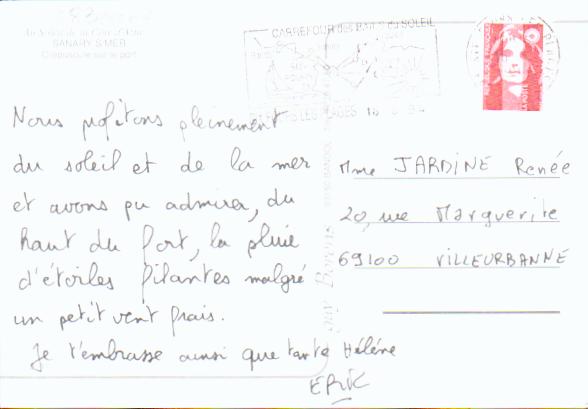 SANARY S/MER
Crépuscule sur le port
CARREFOUR des BAIES du SOLEIL
LES PLAGES 16
Nous profitons pleinement
du soleil et de la mer
et avons pu admirer, du
haut du fort, la pluie
d'étoiles filantes malgré
un petit vent frais.
Je t'embrasse ainsi que tante Hélène
ERIC
Mme JARDINE Renée
20, rue Marguerite
69100 VILLEURBANNE